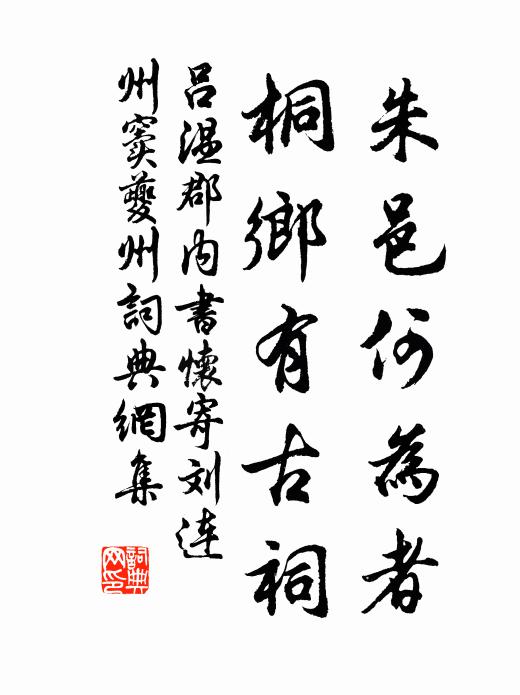 朱邑何為者
桐鄉有古祠
吕温郡内書懷寄刘连
州窦夔州詞典網集
詞典
网印